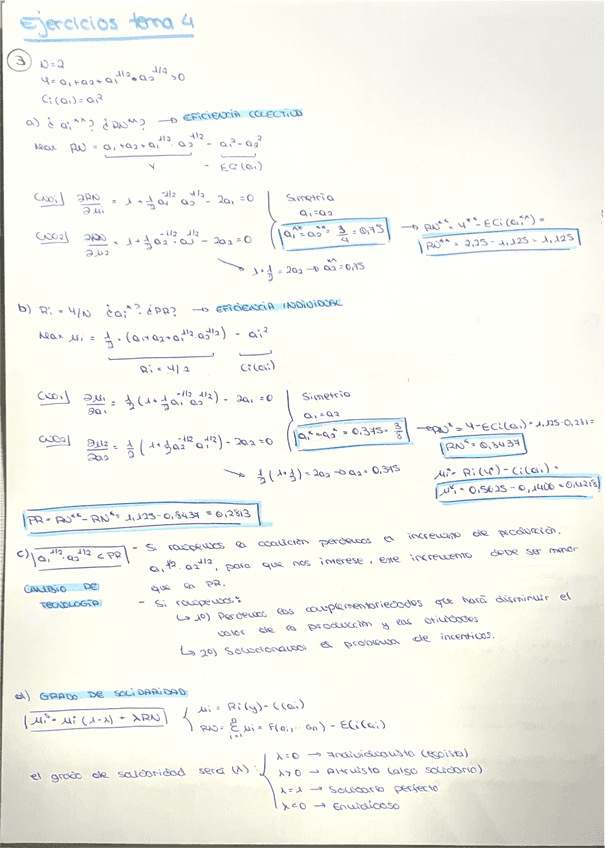 Ejercicios tema 4
3 N=2
Y = a₁ + a₂ + a₁^1/2 · a₂^1/2 > 0
Ci(ai) = ai²
a) ¿ ai**? ¿ RN**? → EFICIENCIA COLECTIVA
Max RN = a₁ + a₂ + a₁^1/2 · a₂^1/2 - a₁² - a₂²
Y - ΣCi(ai)
CPO₁) ∂RN/∂a₁ = 1 + 1/2 a₁^-1/2 a₂^1/2 - 2a₁ = 0
Simetria
a₁ = a₂
CPO₂) ∂RN/∂a₂ = 1 + 1/2 a₂^-1/2 · a₁^1/2 - 2a₂ = 0
a₁** = a₂** = 3/4 = 0,75
→ RN** = Y** - ΣCi(ai**) =
RN** = 2,25 - 1,125 = 1,125
→ 1 + 1/2 = 2a₂ → a₂** = 0,75
b) Ri = Y/N ¿ ai*? ¿ PR? → EFICIENCIA INDIVIDUAL
Max μi = 1/2 · (a₁ + a₂ + a₁^1/2 · a₂^1/2) - ai²
Ri = Y/2 Ci(ai)
CPO₁) ∂μ₁/∂a₁ = 1/2 (1 + 1/2 a₁^-1/2 a₂^1/2) - 2a₁ = 0
Simetria
a₁ = a₂
CPO₂) ∂μ₂/∂a₂ = 1/2 (1 + 1/2 a₂^-1/2 a₁^1/2) - 2a₂ = 0
a₁* = a₂* = 0,375 = 3/8
→ RN* = Y - ΣCi(ai) = 1,125 - 0,281 =
RN* = 0,8437
→ 1/2 (1 + 1/2) = 2a₂ → a₂ = 0,375
μi* = Ri(Y*) - Ci(ai) =
μ*i = 0,5625 - 0,1406 = 0,4218
PR = RN** - RN* = 1,125 - 0,8437 = 0,2813
c) a₁^1/2 · a₂^1/2 < PR
- Si rompemos la coalición perdemos el incremento de producción.
a₁^1/2 · a₂^1/2, para que nos interese, este incremento debe ser menor
que la PR.
CAMBIO DE
TECNOLOGÍA
- Si rompemos:
↳ 1º) Perdemos las complementariedades que hará disminuir el
valor de la producción y las utilidades
↳ 2º) Solucionamos el problema de incentivos.
d) GRADO DE SOLIDARIDAD
μi^s = μi (1-λ) + λRN
μi = Ri(y) - C(ai)
RN = Σ μi = F(a₁,...an) - ΣCi(ai)
el grado de solidaridad será (λ):
λ=0 → Individualista (egoísta)
λ>0 → Altruista (algo solidario)
λ=1 → Solidario perfecto
λ<0 → Envidioso